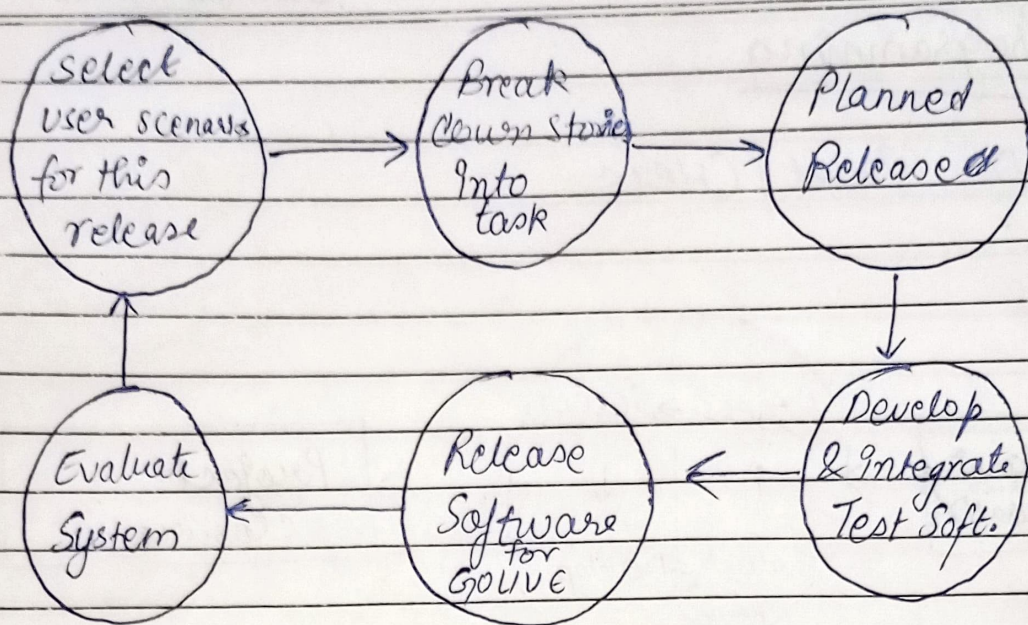 select
user scenarios
for this
release
Break
down stories
Into
task
Planned
Release
Develop
& integrate
Test Soft.
Release
Software
for
GOLIVE
Evaluate
System